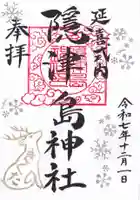 延喜式内
隠津島神社
奉拝
令和七年十二月一日